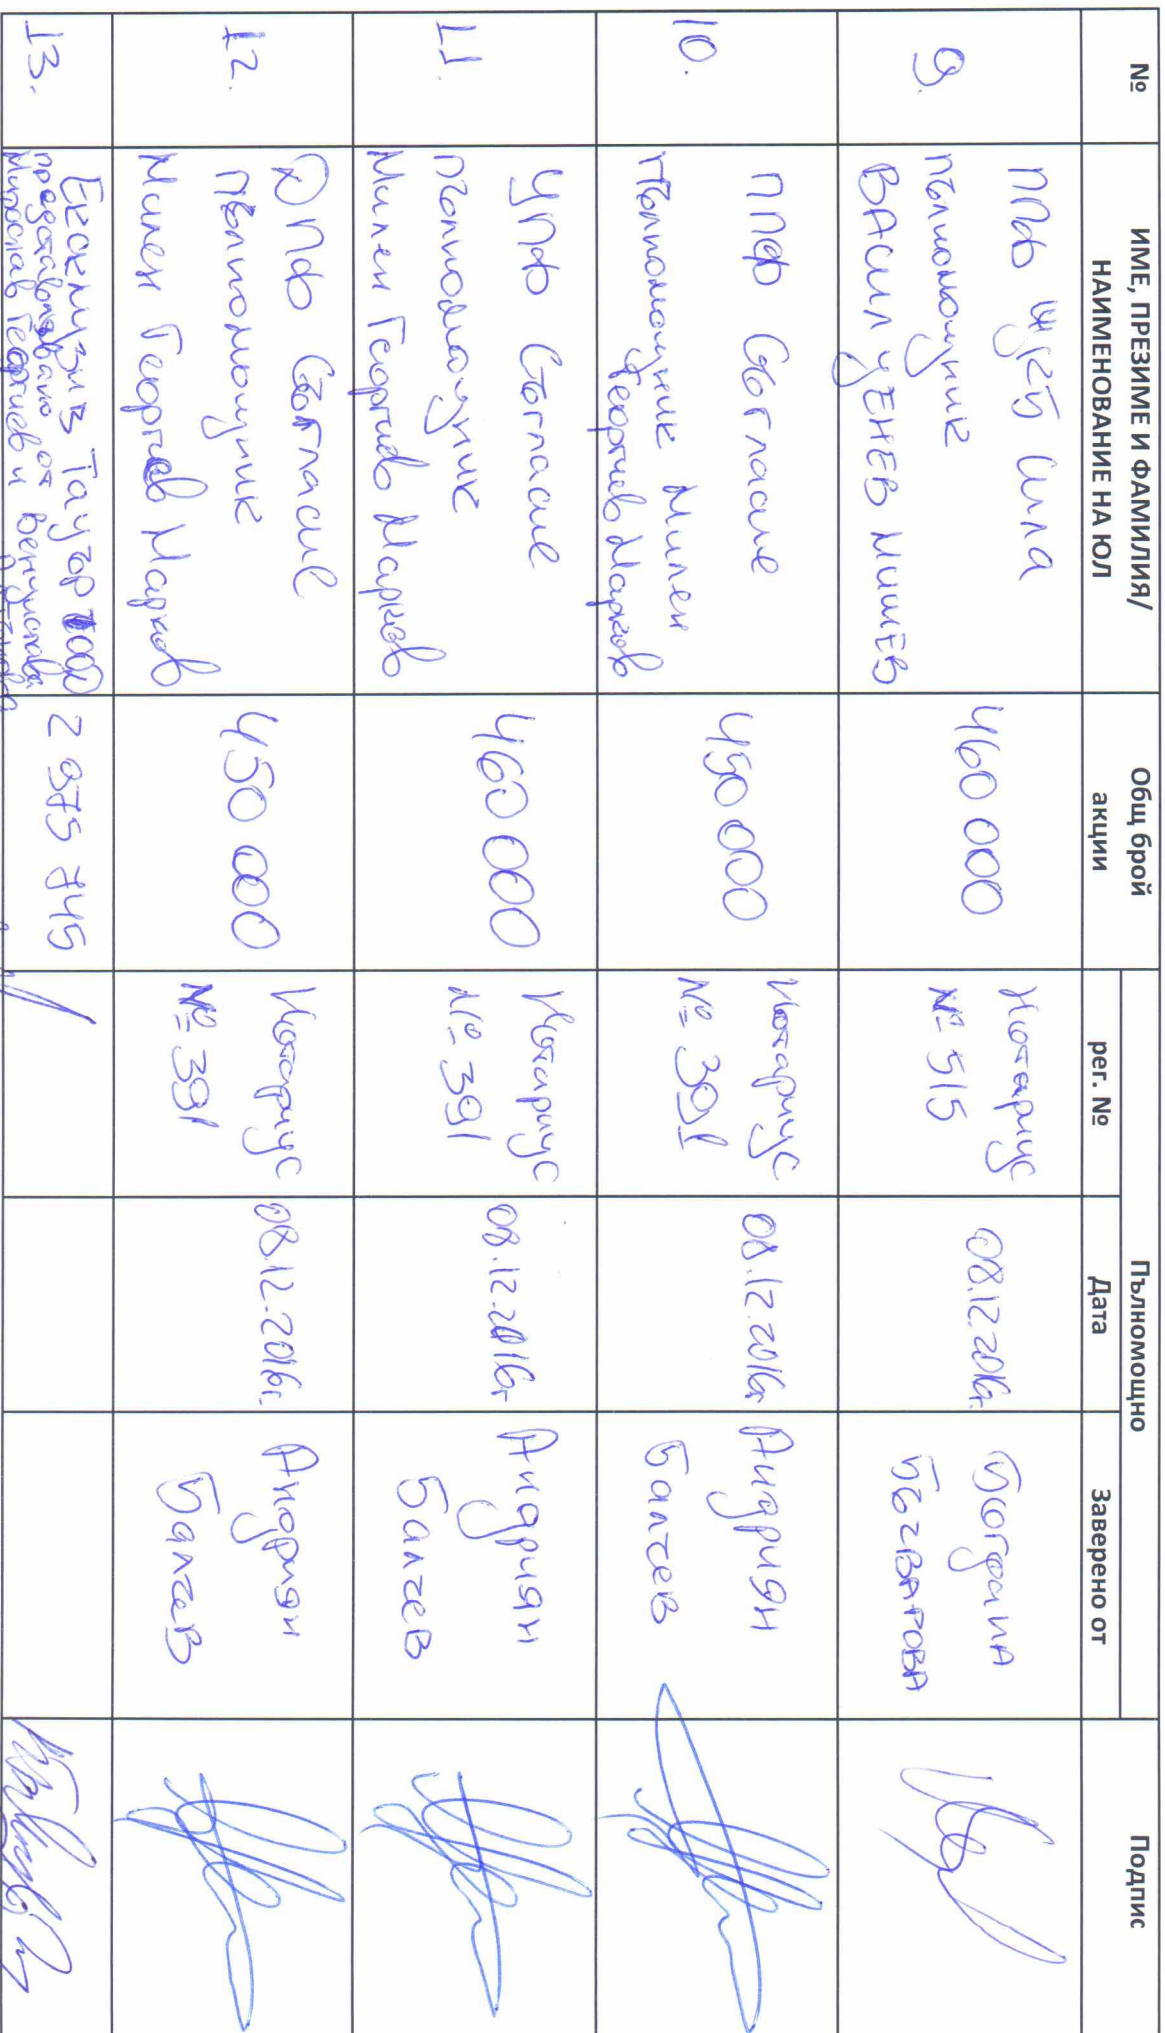 №
ИМЕ, ПРЕЗИМЕ И ФАМИЛИЯ/
НАИМЕНОВАНИЕ НА ЮЛ
Общ брой
акции
Пълномощно
рег. №
Дата
Заверено от
Подпис
9.
ППФ ЦКБ Сила
пълномощник
ВАСИЛ ЦЕНЕВ МИШЕВ
460 000
Нотариус
№ 515
08.12.2016г.
Богдана
БЪЧВАРОВА
10.
ППФ Съгласие
Пълномощник Милен
Георгиев Марков
450 000
Нотариус
№ 391
08.12.2016г
Андриян
Балтев
11.
УПФ Съгласие
Пълномощник
Милен Георгиев Марков
460 000
Нотариус
№ 391
08.12.2016г
Андриян
Балтев
12.
ДПФ Съгласие
Пълномощник
Милен Георгиев Марков
450 000
Нотариус
№ 391
08.12.2016г.
Андриян
Балтев
13.
Ексклузив Тауър
представлявано от
Мирослав Георгиев и
2 975 745